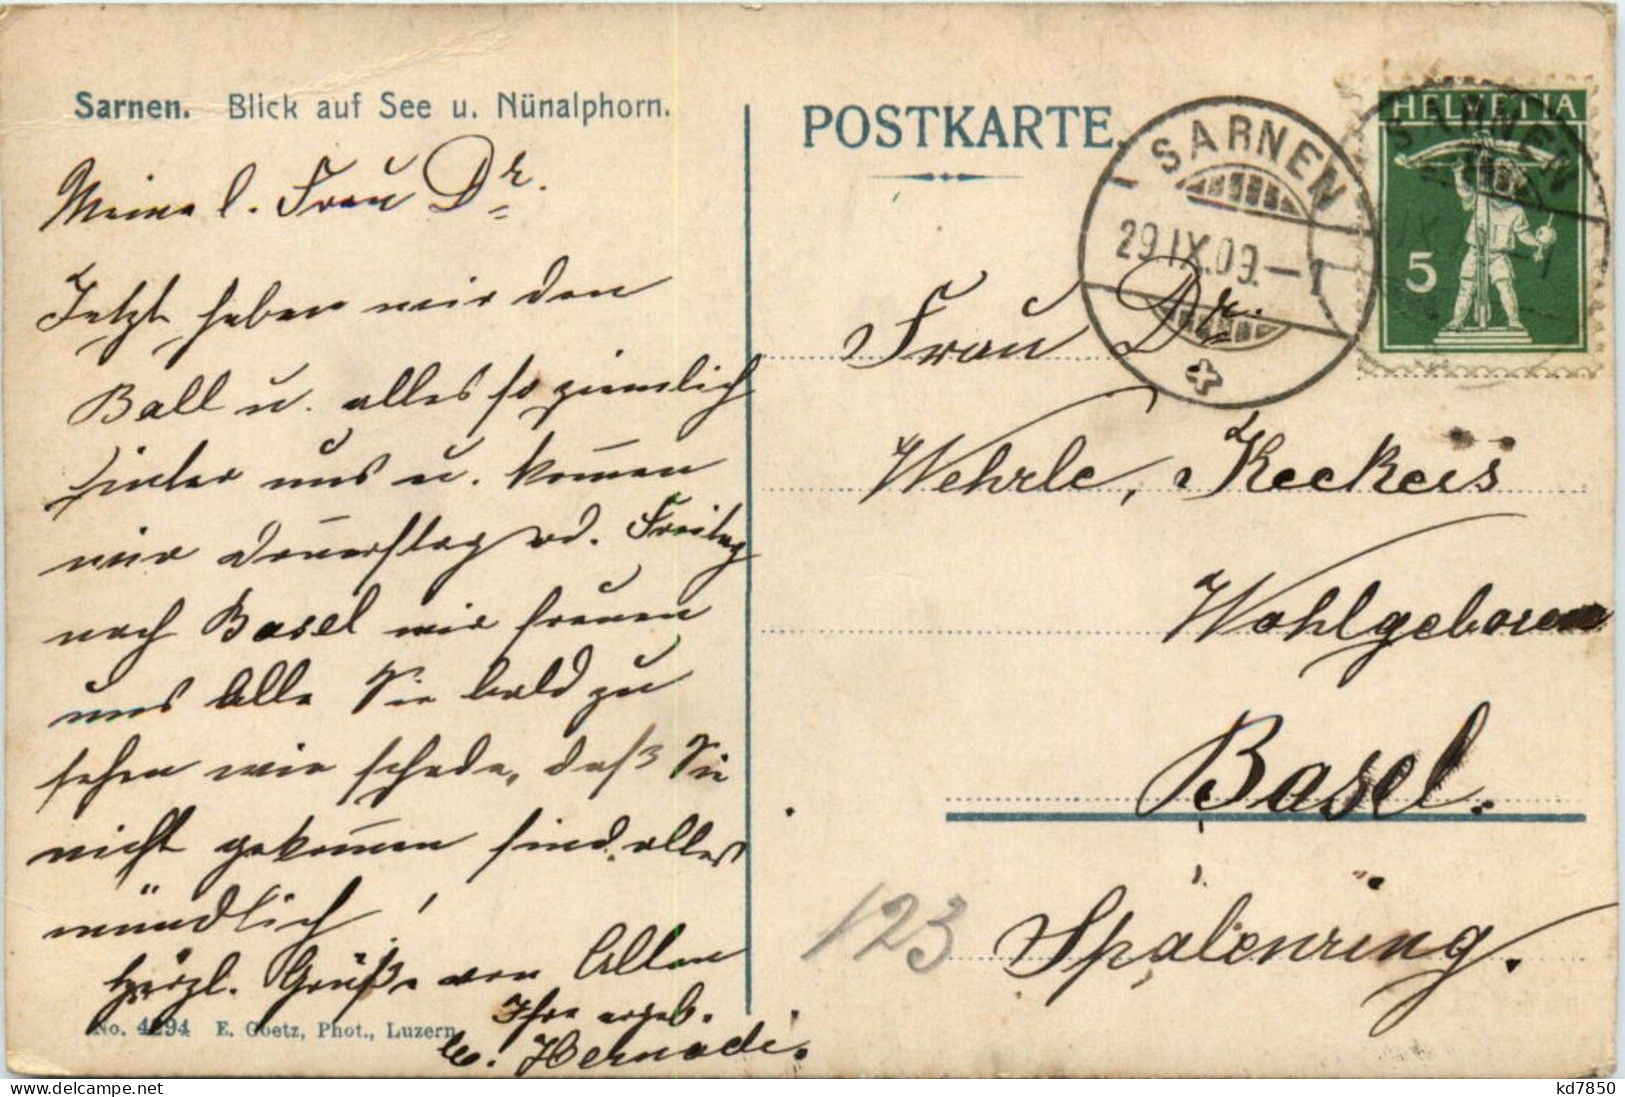 Sarnen. Blick auf See u. Nünalphorn.
Meine l. Frau Dr.
Jetzt haben wir den
Ball u. alles so ziemlich
hinter uns u. kom̅en
wir Don̅erstag od. Freitag
nach Basel wir freuen
uns Alle Sie bald zu
sehen wie schade, daß Sie
nicht gekom̅en sind, alles
mündlich!
Herzl. Grüße von Allen
Ihre ergeb.
Hernadi.
No. 4294 E. Goetz, Phot., Luzern
POSTKARTE.
SARNEN
29.IX.09.—1
HELVETIA
5
SARNEN
Frau Dr.
Wehrle, Keckeis
Wohlgeboren
Basel.
123
Spalenring.
kd7850